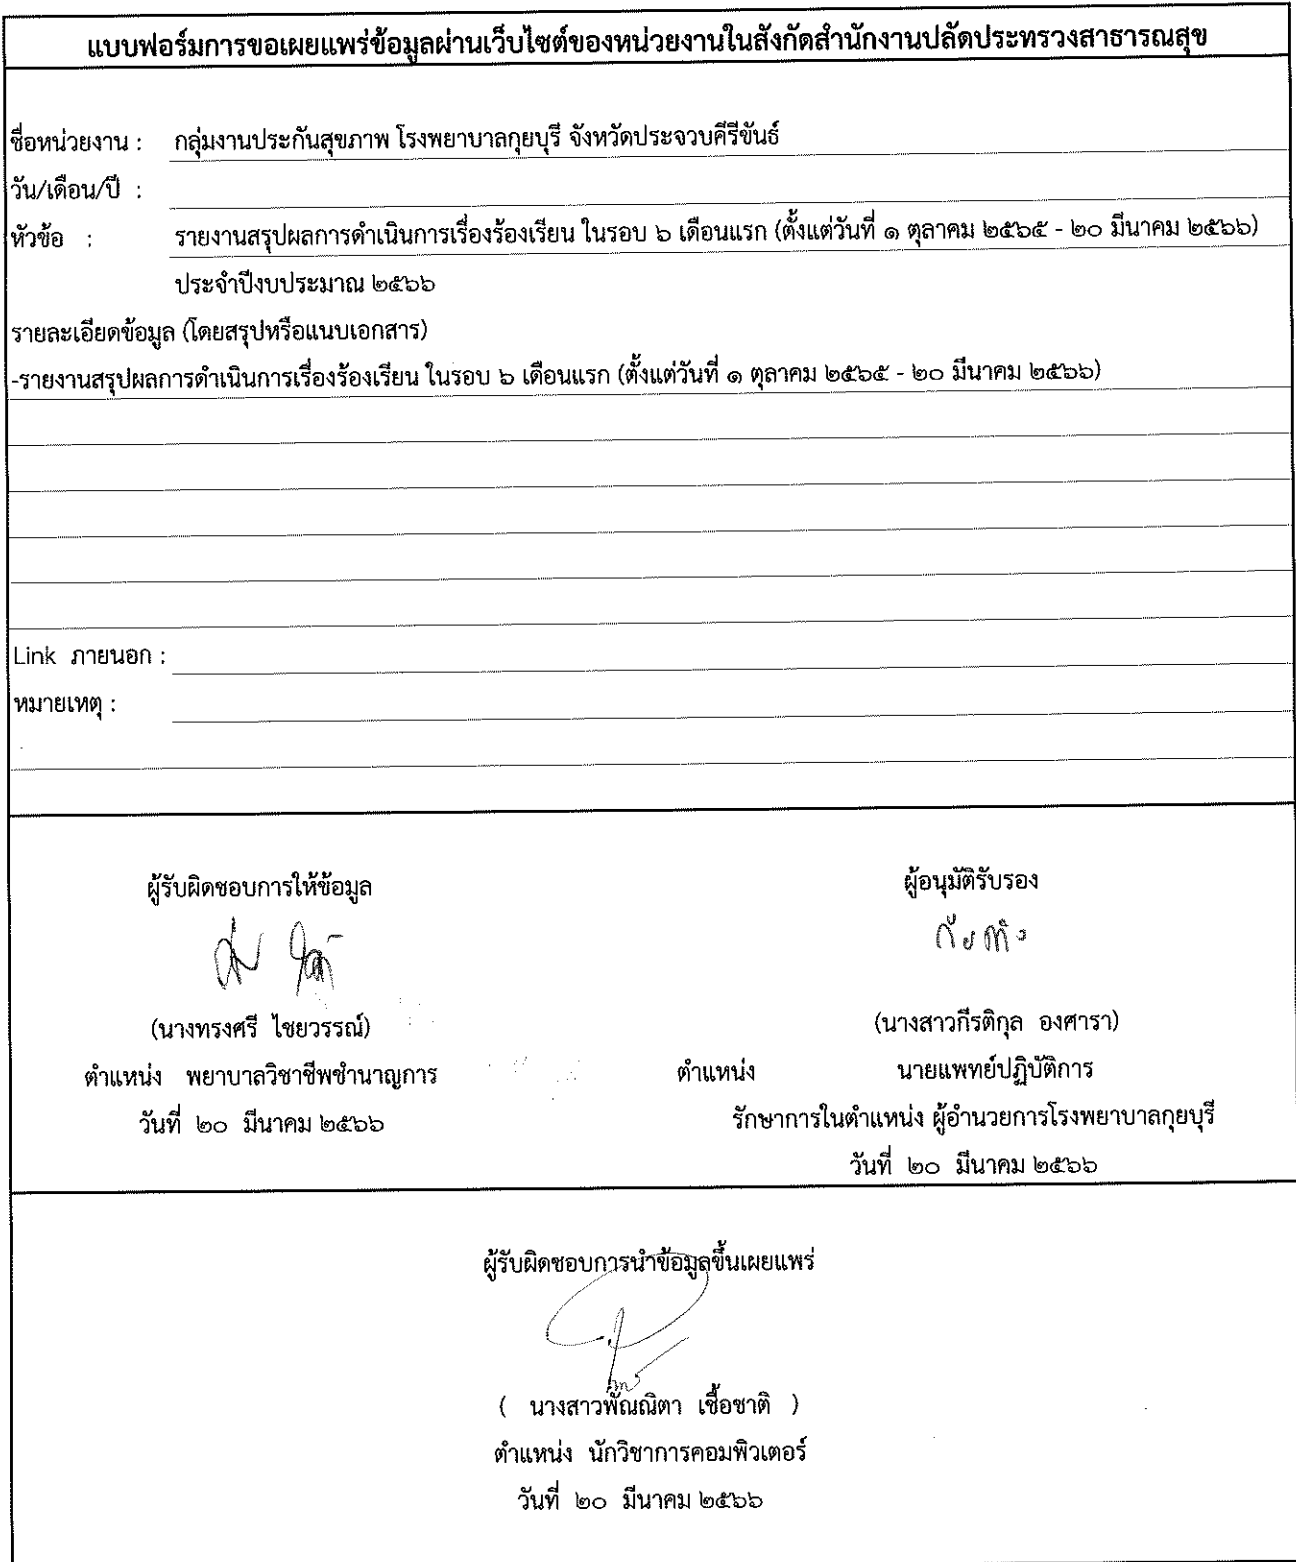 แบบฟอร์มการขอเผยแพร่ข้อมูลผ่านเว็บไซต์ของหน่วยงานในสังกัดสำนักงานปลัดประทรวงสาธารณสุข
ชื่อหน่วยงาน : กลุ่มงานประกันสุขภาพ โรงพยาบาลกุยบุรี จังหวัดประจวบคีรีขันธ์
วัน/เดือน/ปี :
หัวข้อ : รายงานสรุปผลการดำเนินการเรื่องร้องเรียน ในรอบ ๖ เดือนแรก (ตั้งแต่วันที่ ๑ ตุลาคม ๒๕๖๕ - ๒๐ มีนาคม ๒๕๖๖)
ประจำปีงบประมาณ ๒๕๖๖
รายละเอียดข้อมูล (โดยสรุปหรือแนบเอกสาร)
-รายงานสรุปผลการดำเนินการเรื่องร้องเรียน ในรอบ ๖ เดือนแรก (ตั้งแต่วันที่ ๑ ตุลาคม ๒๕๖๕ - ๒๐ มีนาคม ๒๕๖๖)
Link ภายนอก :
หมายเหตุ :
ผู้รับผิดชอบการให้ข้อมูล
(นางทรงศรี ไชยวรรณ์)
ตำแหน่ง พยาบาลวิชาชีพชำนาญการ
วันที่ ๒๐ มีนาคม ๒๕๖๖
ผู้อนุมัติรับรอง
(นางสาวกีรติกุล องศารา)
ตำแหน่ง นายแพทย์ปฏิบัติการ
รักษาการในตำแหน่ง ผู้อำนวยการโรงพยาบาลกุยบุรี
วันที่ ๒๐ มีนาคม ๒๕๖๖
ผู้รับผิดชอบการนำข้อมูลขึ้นเผยแพร่
( นางสาวพัณณิตา เชื้อชาติ )
ตำแหน่ง นักวิชาการคอมพิวเตอร์
วันที่ ๒๐ มีนาคม ๒๕๖๖